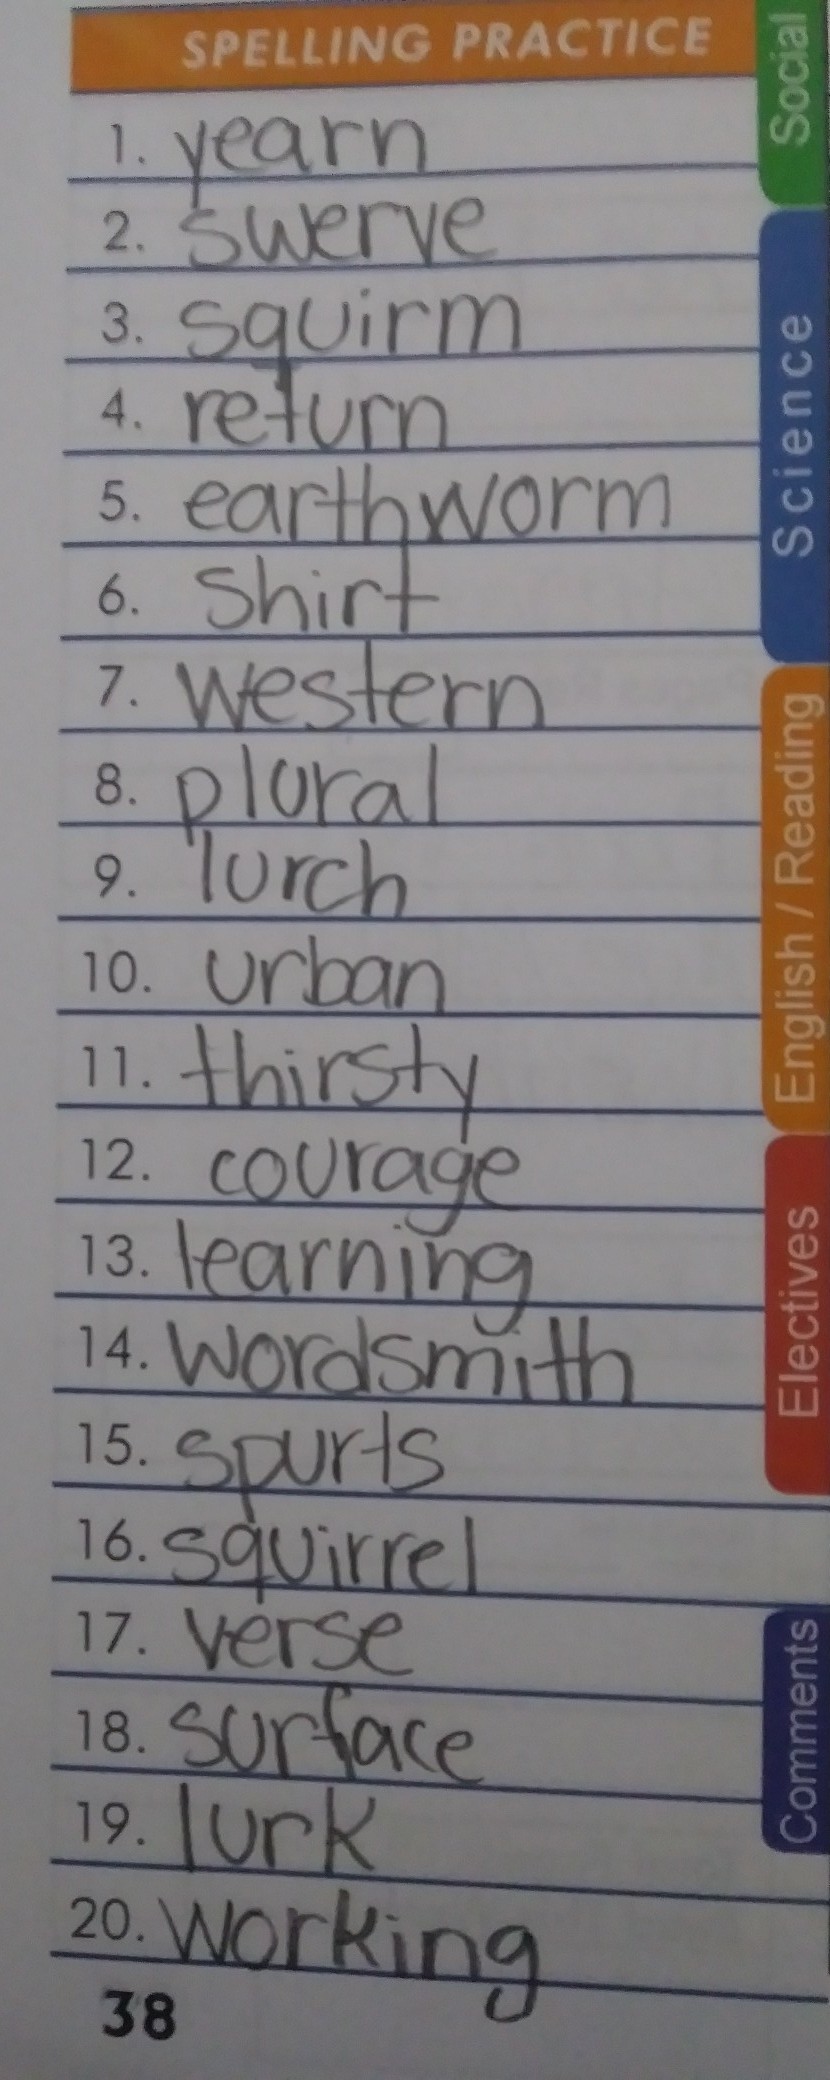 SPELLING PRACTICE
1. yearn
2. swerve
3. squirm
4. return
5. earthworm
6. shirt
7. western
8. plural
9. lurch
10. urban
11. thirsty
12. courage
13. learning
14. wordsmith
15. spurts
16. squirrel
17. verse
18. surface
19. lurk
20. working
38
Social
Science
English / Reading
Electives
Comments